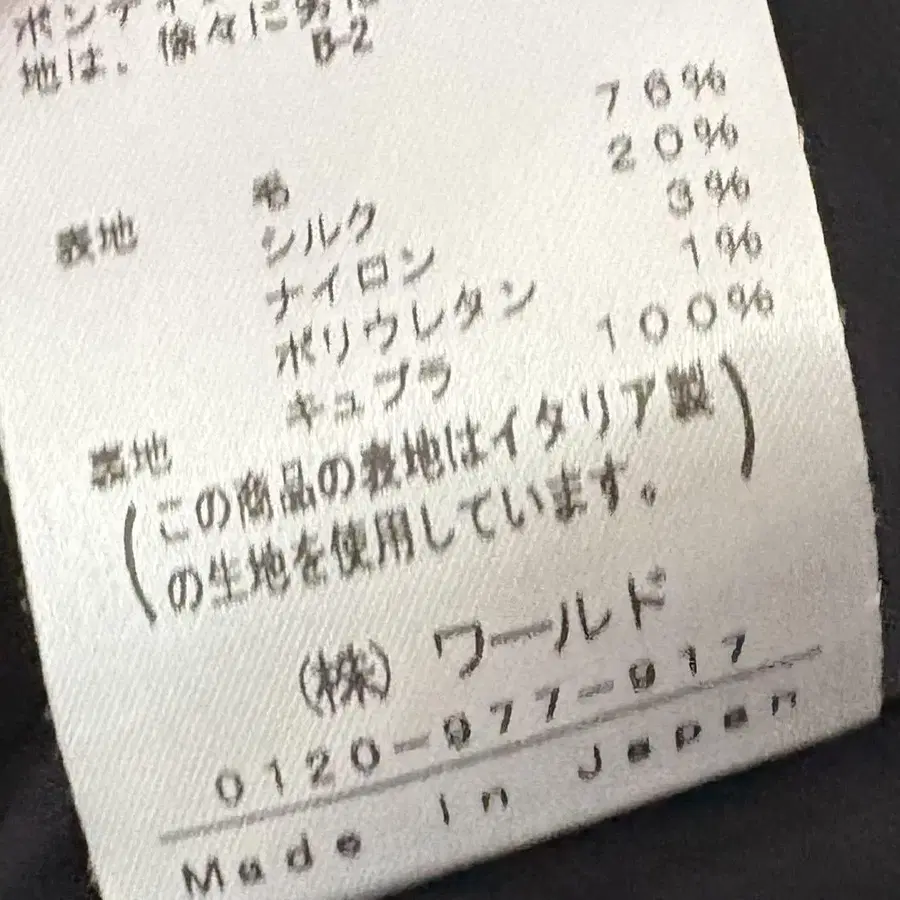 ボンディ
地は、徐々に劣
B-2
表地 毛 76%
シルク 20%
ナイロン 3%
ポリウレタン 1%
裏地 キュプラ 100%
(この商品の表地はイタリア製
の生地を使用しています。)
(株) ワールド
0120-977-917
Made in Japan